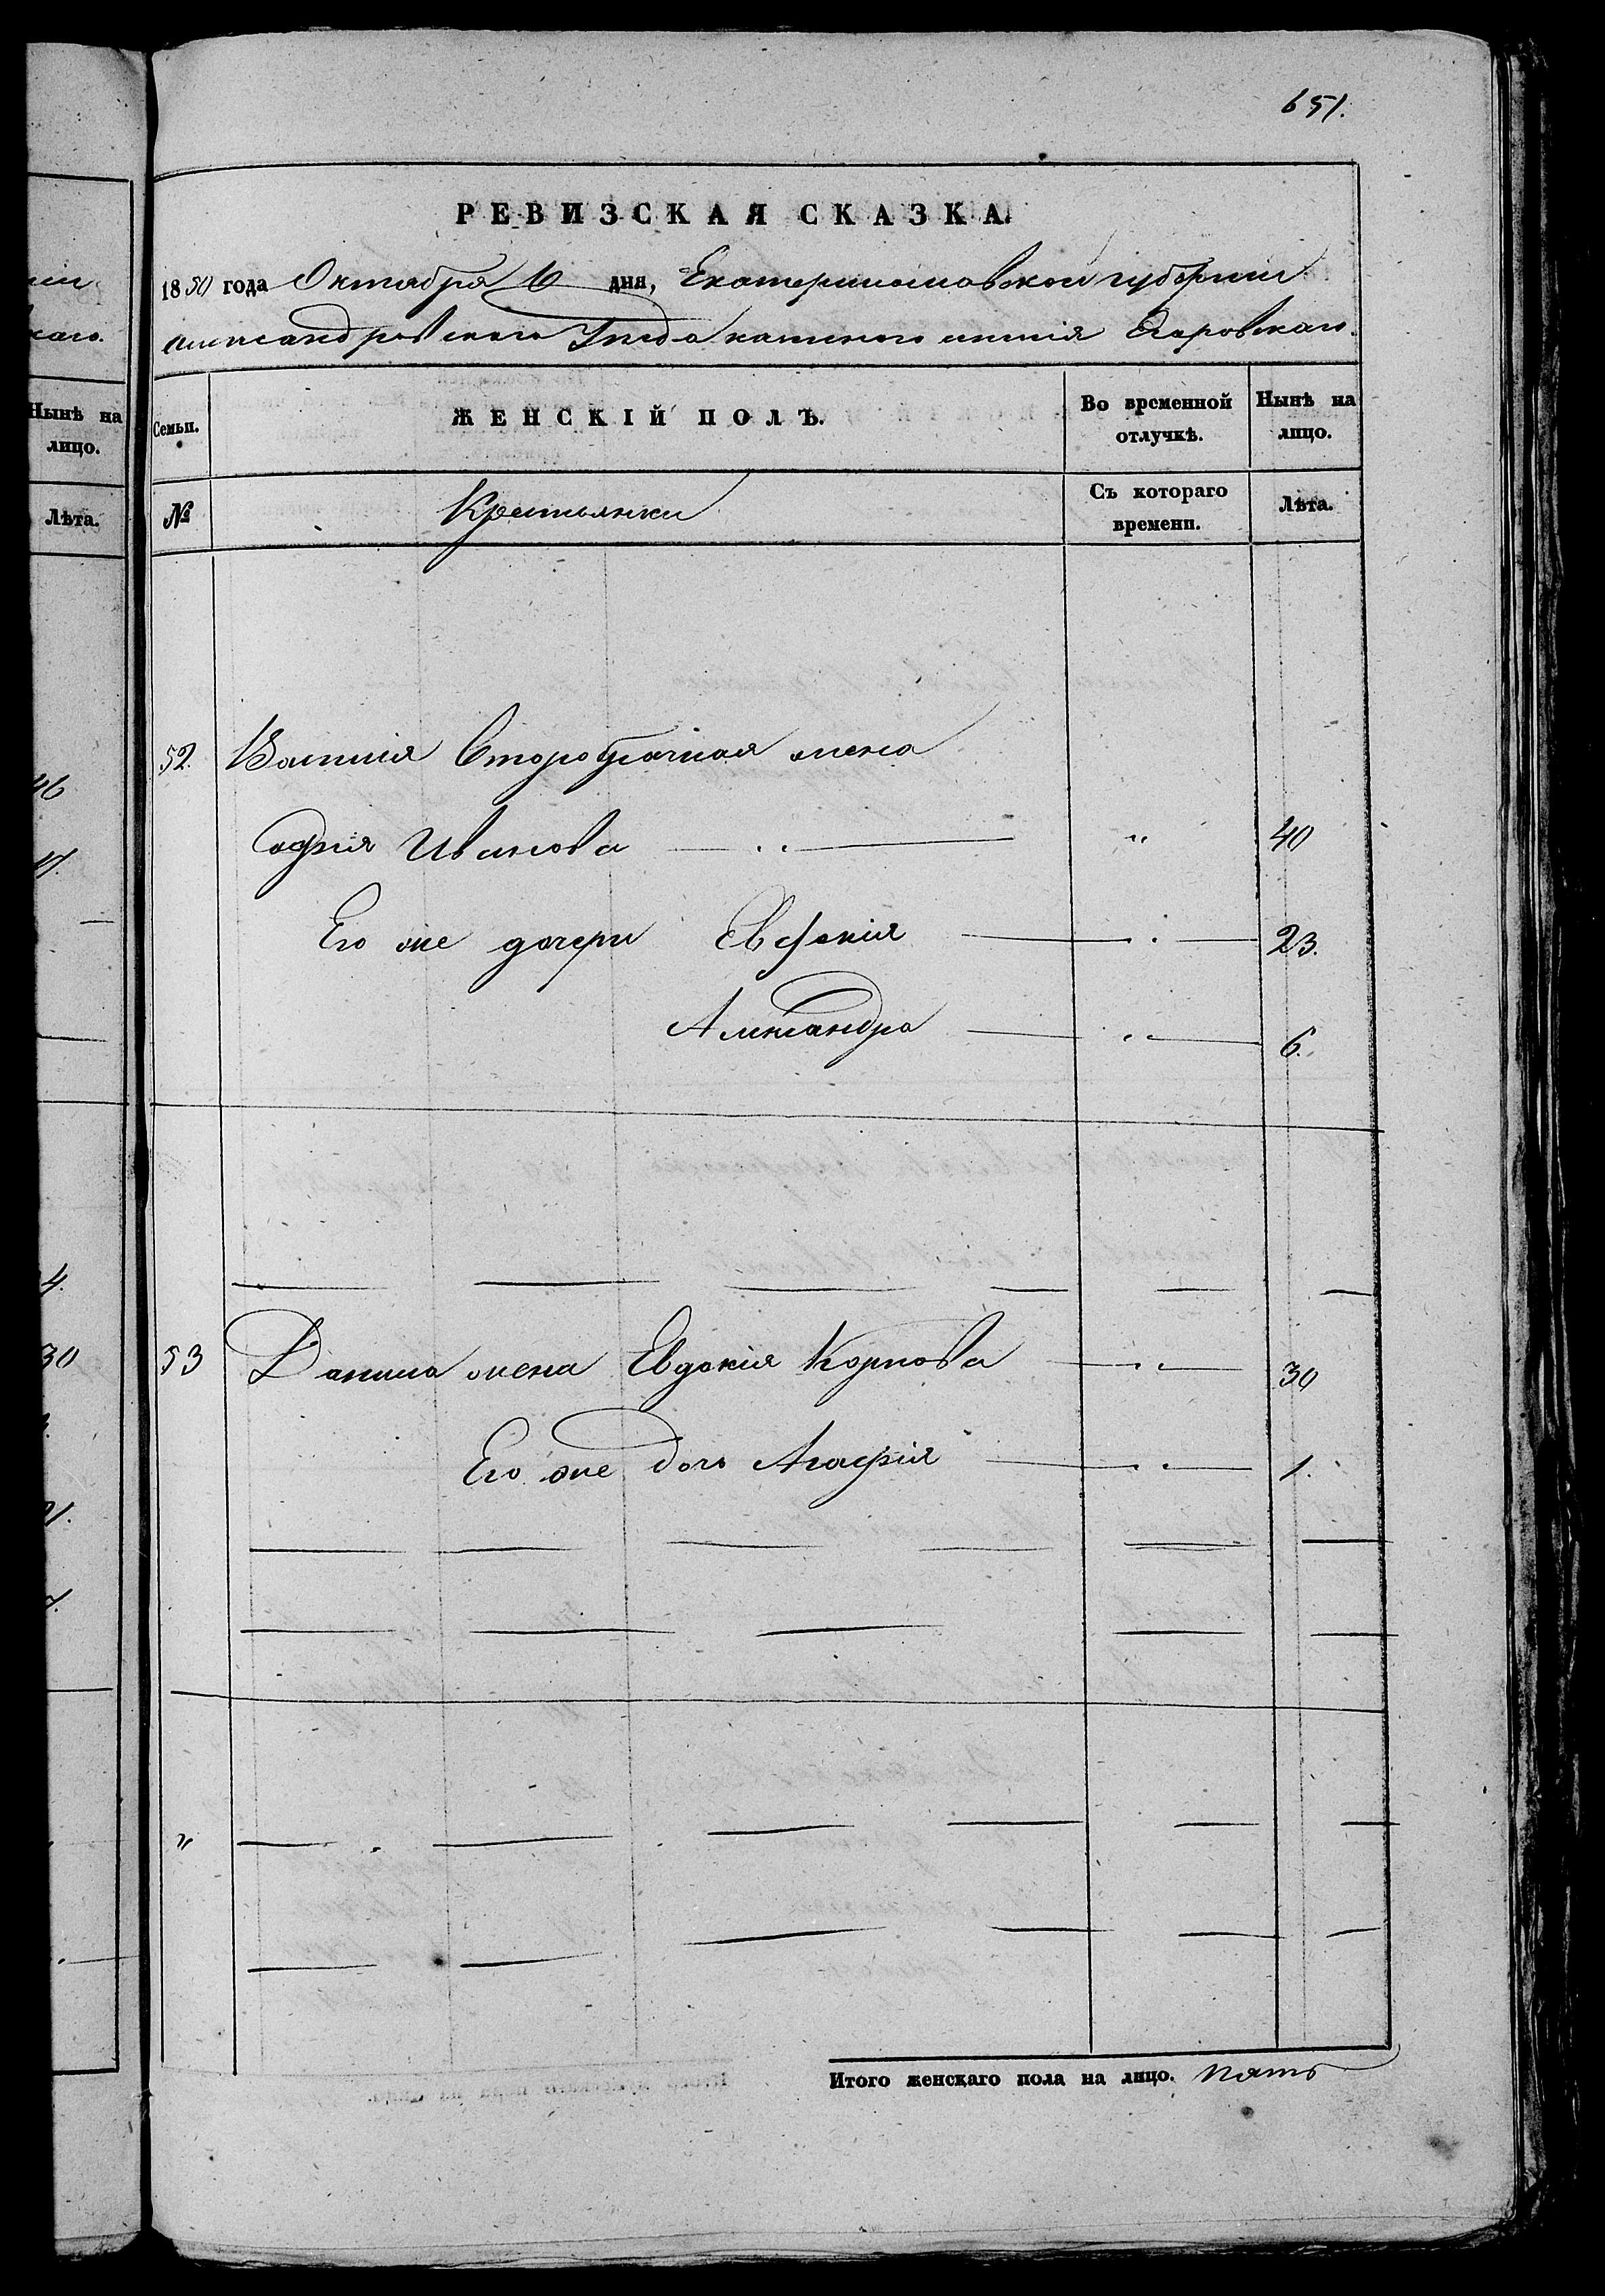 651.
РЕВИЗСКАЯ СКАЗКА.
1850 года Октября 6 дня, Екатеринославской губернии
Александровского Уезда казенного имения
Семьи.
ЖЕНСКІЙ ПОЛЪ.
Во временной отлучкѣ.
Нынѣ на лицо.
№
Крестьянки
Съ котораго времени.
Лѣта.
52. Василія Второбрачная жена
Софія Иванова " 40
Его же дочери Евфимія " 23.
Александра " 6.
53 Данила жена Евдокія Карпова " 30
Его же дочь Агафія " 1.
"
Итого женскаго пола на лицо. пять
Нынѣ на
лицо.
Лѣта.
46
4.
30